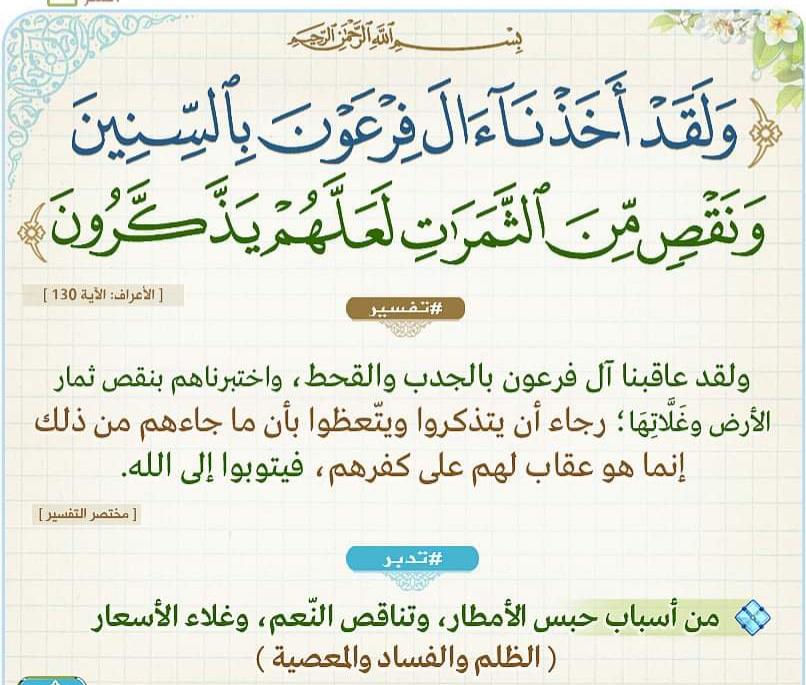 بِسْمِ اللَّهِ الرَّحْمَٰنِ الرَّحِيمِ
﴿ وَلَقَدْ أَخَذْنَآ ءَالَ فِرْعَوْنَ بِٱلسِّنِينَ
وَنَقْصٍ مِّنَ ٱلثَّمَرَٰتِ لَعَلَّهُمْ يَذَّكَّرُونَ ﴾
[ الأعراف: الآية 130 ]
#تفسير
ولقد عاقبنا آل فرعون بالجدب والقحط، واختبرناهم بنقص ثمار
الأرض وغَلَّاتِهَا؛ رجاء أن يتذكروا ويتّعظوا بأن ما جاءهم من ذلك
إنما هو عقاب لهم على كفرهم، فيتوبوا إلى الله.
[ مختصر التفسير ]
#تدبر
من أسباب حبس الأمطار، وتناقص النّعم، وغلاء الأسعار
( الظلم والفساد والمعصية )